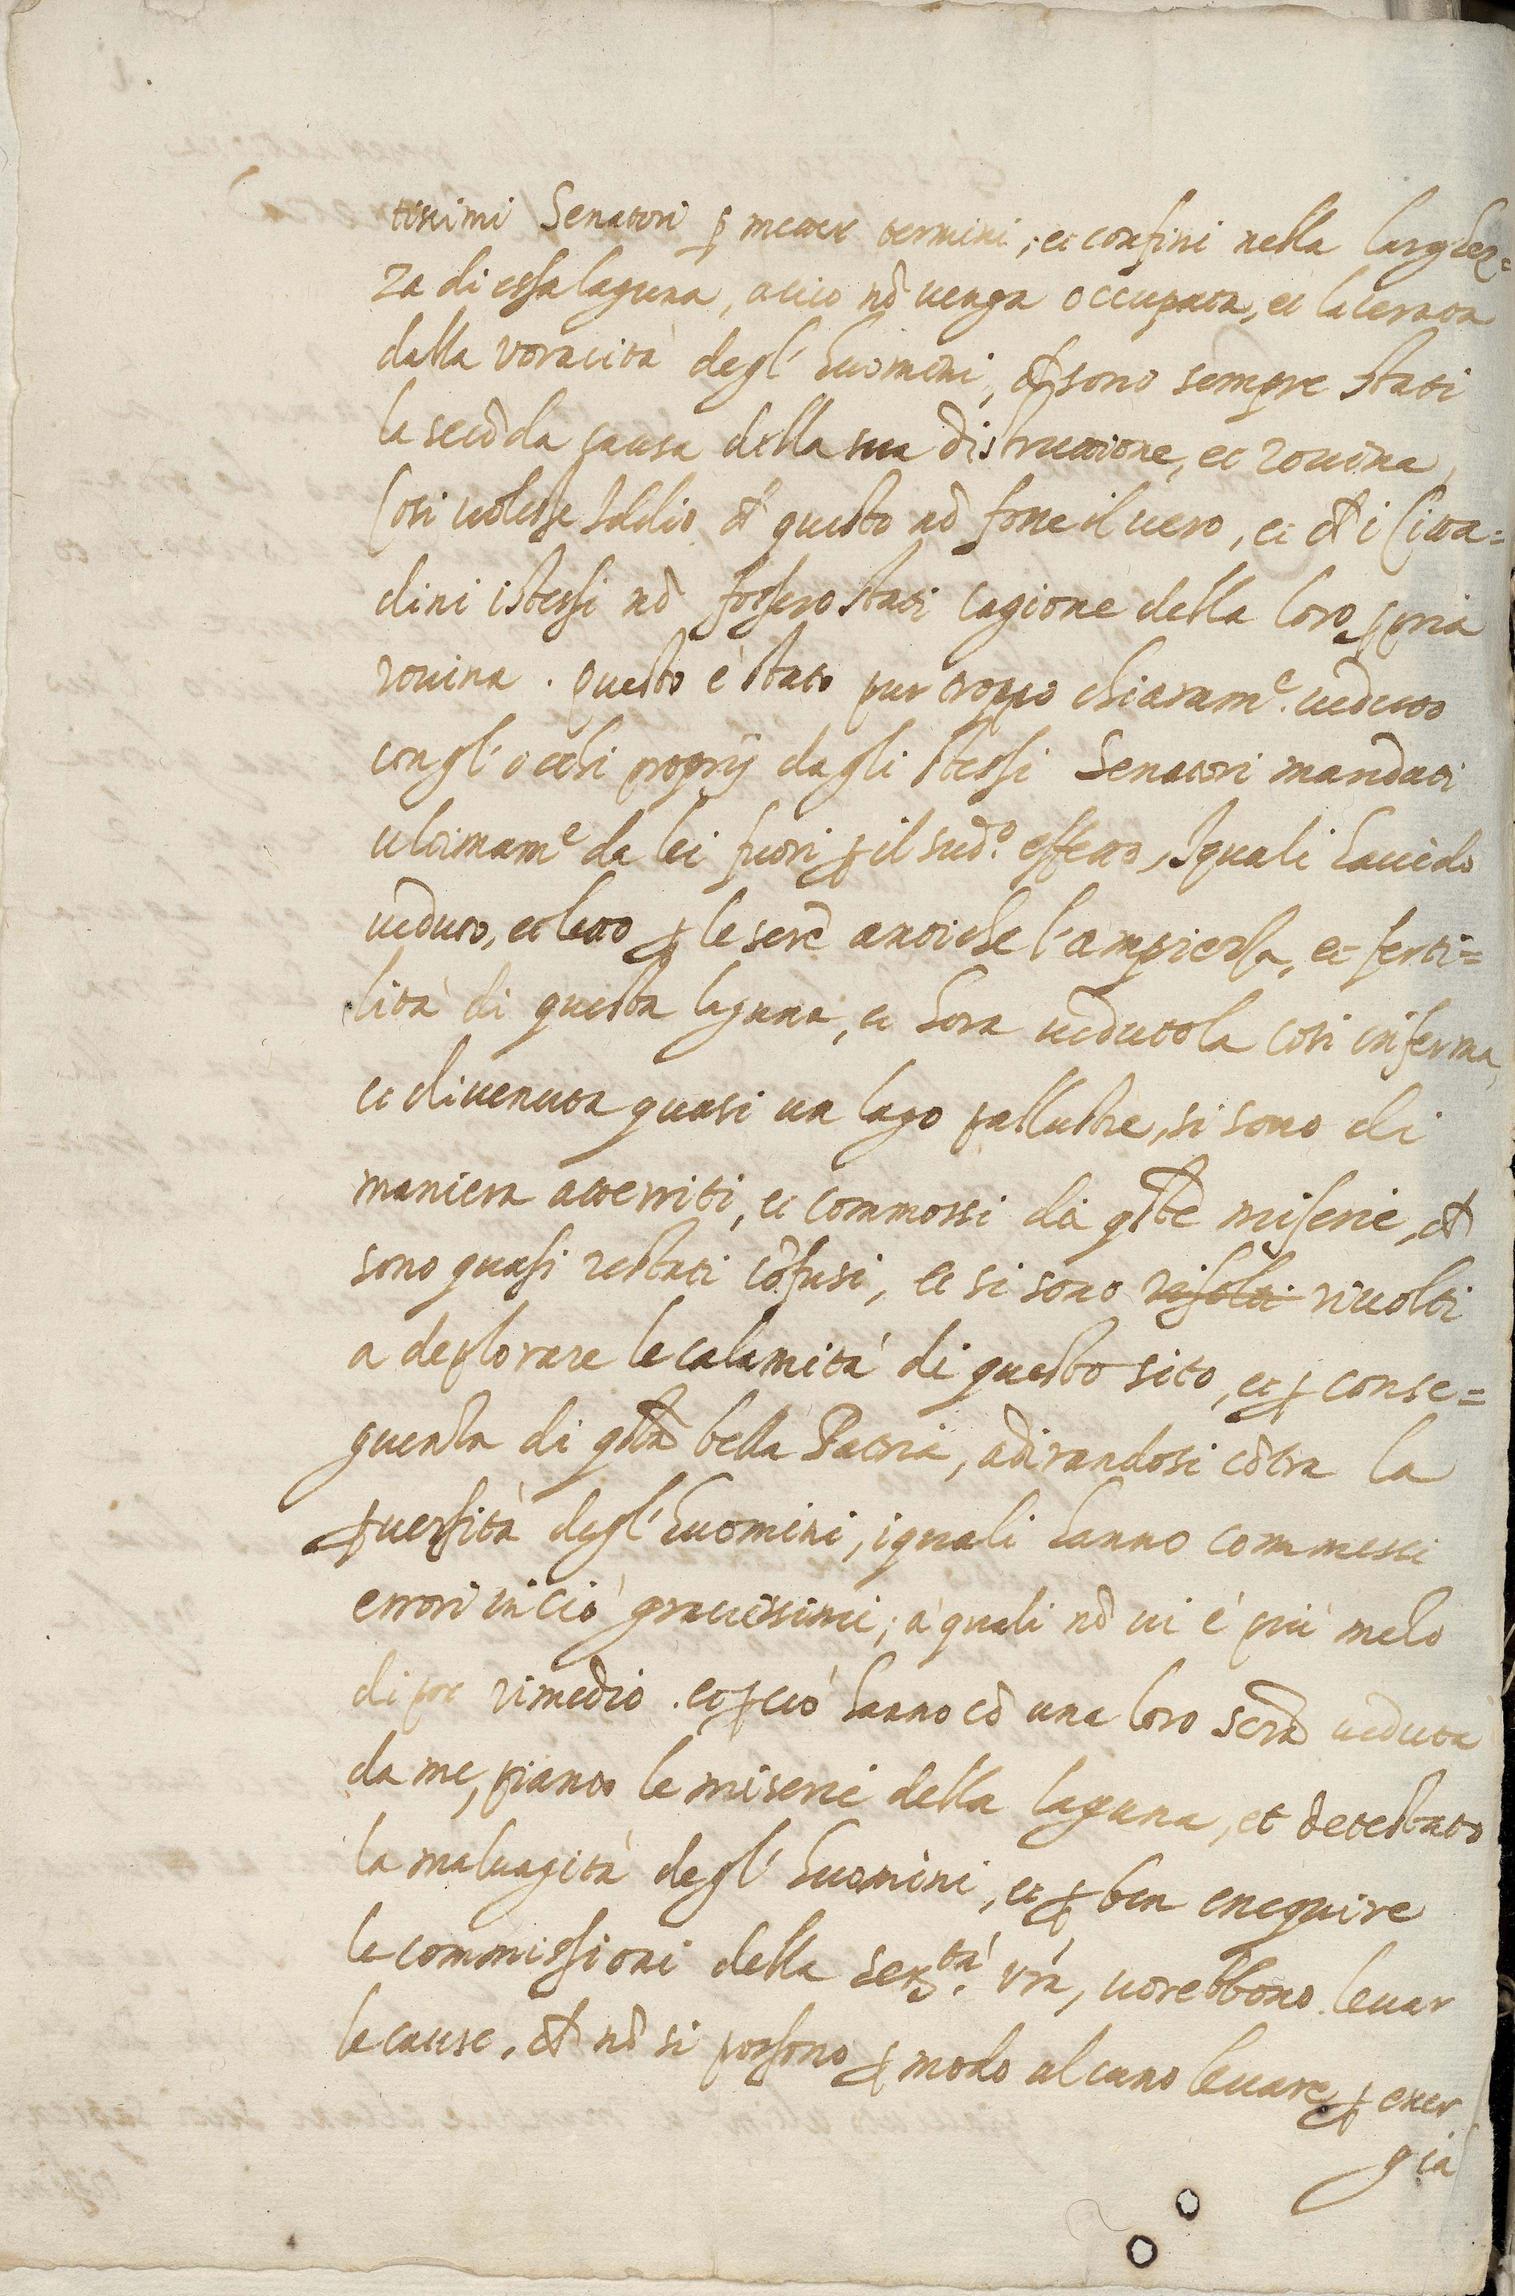 tissimi Senatori ꝑ metter termini, et confini nella larghez=
za di essa laguna, acciò nõ uenga occupata, et lacerata
dalla voracità degl' huomini, ch̃ sono sempre stati
la secõda causa della sua distruttione, et rouina,
Cosi uolesse Iddio ch̃ questo nõ fosse il uero, et ch̃ i Citta=
dini istessi nõ fossero stati cagione della loro ꝓpria
rouina. Questo è stato pur troppo chiaram.e ueduto
con gl' occhi proprij dagli stessi Senatori mandati
ultimam.e da lei fuori ꝑ il sud.o effetto, I quali hauẽdo
ueduto, et letto ꝑ le scrẽ antiche l'ampiezza, et ferti=
lità di questa laguna, et hora uedutola cosi inferma,
et diuenuta quasi un lago pallustre, si sono di
maniera atterriti, et commossi da q̃ste miserie, ch̃
sono quasi restati cõfusi, et si sono risolti riuolti
a deplorare le calamità di questo sito, et ꝑ conse=
guenza di q̃sta bella Patria, adirandosi cõtra la
ꝑuersità degl' huomini, i quali hanno commessi
errori in ciò grauissimi, à quali nõ ui è più mõdo
di por rimedio. et ꝑciò hanno cõ una loro scrã ueduta
da me, pianto le miserie della laguna, et detestato
la maluagità degl' huomini, et ꝑ ben esequire
le commissioni della Ser.tà vrã, uorebbono leuar
le cause, ch̃ nõ si possono ꝑ modo alcuno leuare ꝑ esser
già